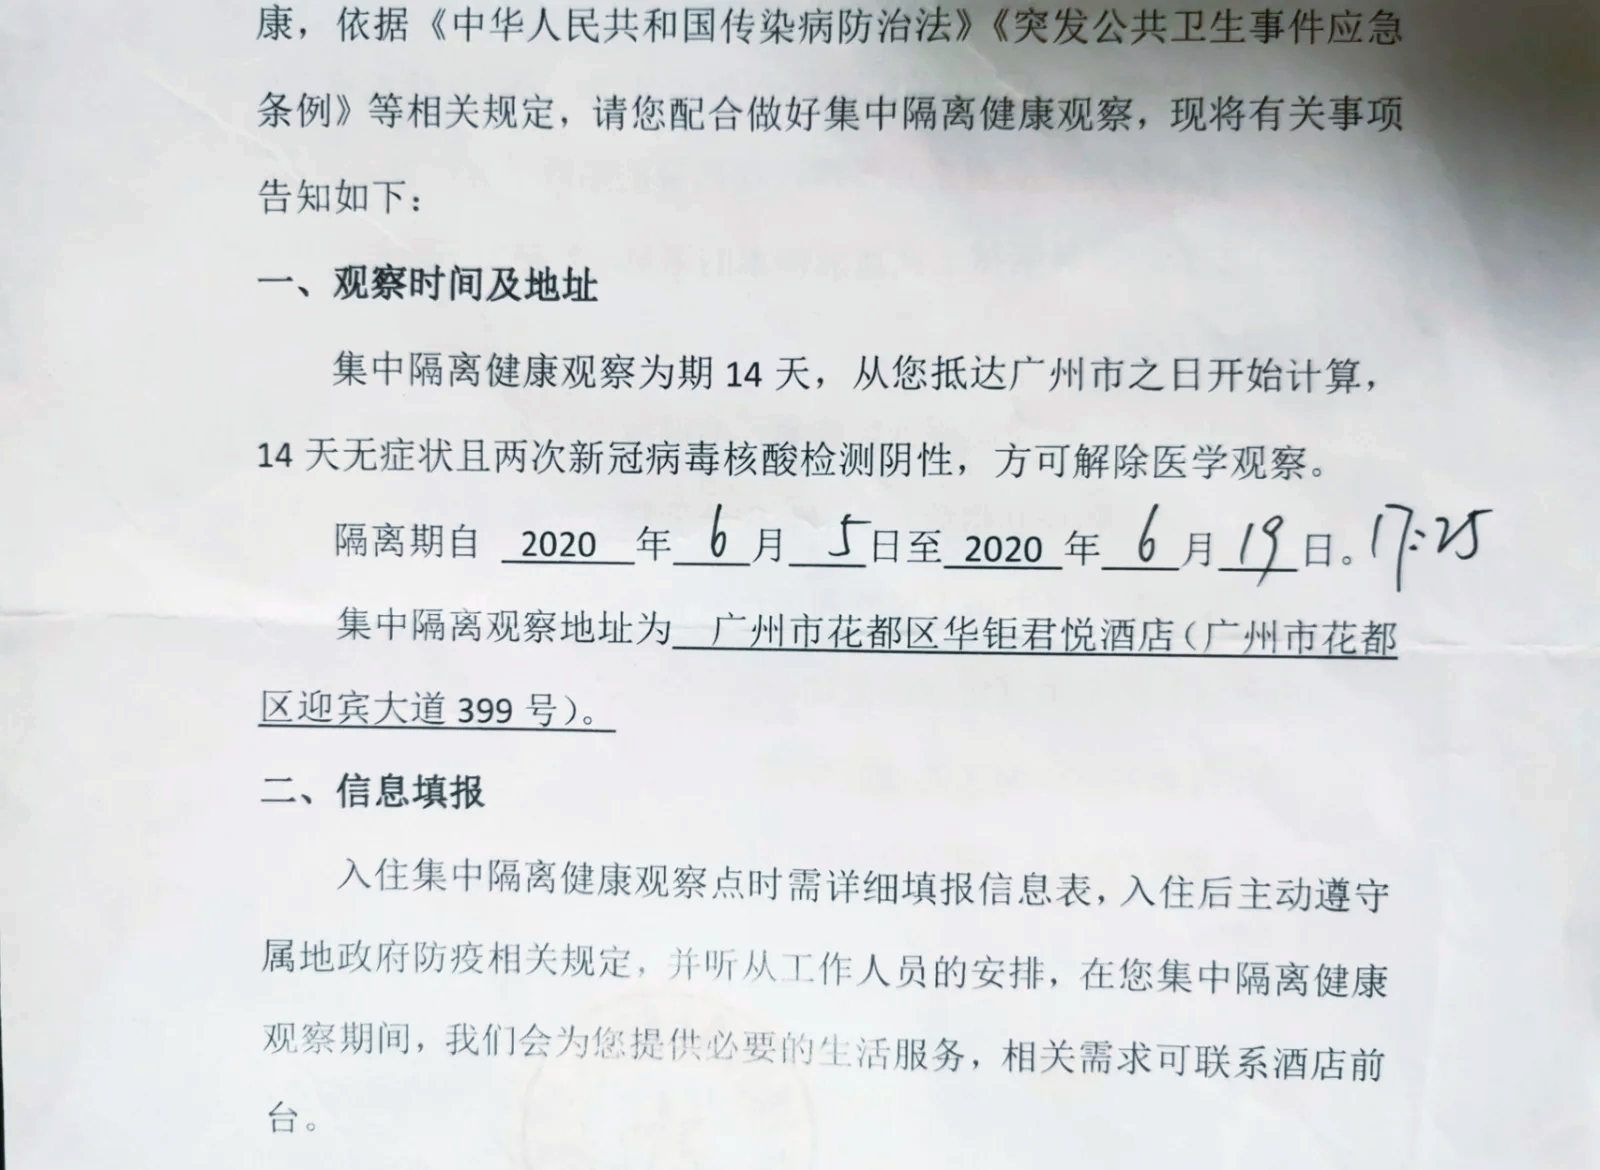 康，依据《中华人民共和国传染病防治法》《突发公共卫生事件应急
条例》等相关规定，请您配合做好集中隔离健康观察，现将有关事项
告知如下：
一、观察时间及地址
集中隔离健康观察为期 14 天，从您抵达广州市之日开始计算，
14 天无症状且两次新冠病毒核酸检测阴性，方可解除医学观察。
隔离期自 2020 年 6 月 5 日至 2020 年 6 月 19 日。17:25
集中隔离观察地址为 广州市花都区华钜君悦酒店（广州市花都
区迎宾大道 399 号）。
二、信息填报
入住集中隔离健康观察点时需详细填报信息表，入住后主动遵守
属地政府防疫相关规定，并听从工作人员的安排，在您集中隔离健康
观察期间，我们会为您提供必要的生活服务，相关需求可联系酒店前
台。